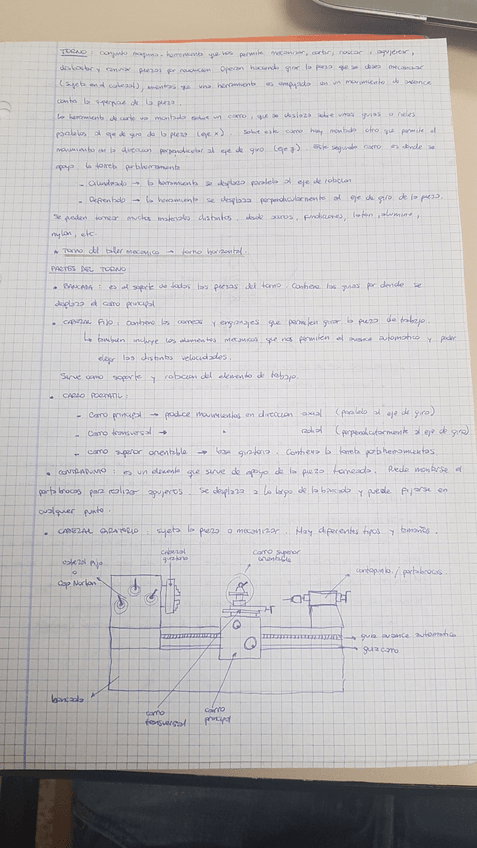 TORNO: Conjunto máquina-herramienta que nos permite mecanizar, cortar, roscar, agujerear,
desbastar y ranurar piezas por revolución. Operan haciendo girar la pieza que se desea mecanizar
(sujeta en el cabezal), mientras que una herramienta es empujada en un movimiento de avance
contra la superficie de la pieza.
La herramienta de corte va montada sobre un carro, que se desplaza sobre unas guías o raíles
paralelos al eje de giro de la pieza (eje x). Sobre este carro hay montado otro que permite el
movimiento en la dirección perpendicular al eje de giro (eje y). Este segundo carro es dónde se
apoya la torreta portaherramientas
- Cilindrado → la herramienta se desplaza paralela al eje de rotación
- Refrentado → la herramienta se desplaza perpendicularmente al eje de giro de la pieza.
Se pueden tornear muchos materiales distintos, desde aceros, fundiciones, latón, aluminio,
nylon, etc
* Torno del taller mecánico → torno horizontal.
PARTES DEL TORNO
• BANCADA: es el soporte de todas las piezas del torno. Contiene las guías por donde se
desplaza el carro principal
• CABEZAL FIJO: contiene las correas y engranajes que permiten girar la pieza de trabajo.
↳ también incluye los elementos mecánicos que nos permiten el avance automático y poder
elegir las distintas velocidades.
Sirve como soporte y rotación del elemento de trabajo.
• CARRO PORTÁTIL:
- Carro principal → produce movimientos en dirección axial (paralelo al eje de giro)
- Carro transversal → " " radial (perpendicularmente al eje de giro)
- carro superior orientable → base giratoria. Contiene la torreta portaherramientas.
• CONTRAPUNTO: es un elemento que sirve de apoyo de la pieza torneada. Puede montarse el
portabrocas para realizar agujeros. Se desplaza a lo largo de la bancada y puede fijarse en
cualquier punto.
• CABEZAL GIRATORIO: sujeta la pieza a mecanizar. Hay diferentes tipos y tamaños.
cabezal fijo
o
Caja Norton
cabezal
giratorio
carro superior
orientable
contrapunto / portabrocas
guía avance automático
guía carro
bancada
carro
transversal
carro
principal